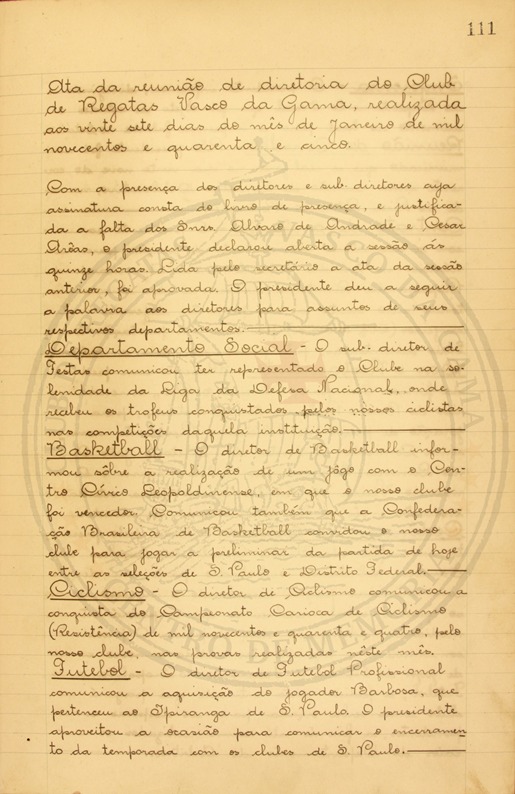 111
Ata da reunião de diretoria do Club
de Regatas Vasco da Gama, realizada
aos vinte sete dias do mês de Janeiro de mil
novecentos e quarenta e cinco.
Com a presença dos diretores e sub-diretores cuja
assinatura consta do livro de presença, e justifica-
da a falta dos Snrs. Alvaro de Andrade e Cesar
Arêas, o presidente declarou aberta a sessão ás
quinze horas. Lida pelo secretário a ata da sessão
anterior, foi aprovada. O presidente deu a seguir
a palavra aos diretores para assuntos de seus
respectivos departamentos.
Departamento Social - O sub-diretor de
Festas comunicou ter representado o Clube na so-
lenidade da Liga da Defesa Nacional, onde
recebeu os trofeus conquistados pelos nossos ciclistas
nas competições daquela instituição.
Basketball - O diretor de Basketball infor-
mou sôbre a realização de um jôgo com o Cen-
tro Cívico Leopoldinense, em que o nosso clube
foi vencedor. Comunicou também que a Confedera-
ção Brasileira de Basketball convidou o nosso
clube para jogar a preliminar da partida de hoje
entre as seleções de S. Paulo e Distrito Federal.
Ciclismo - O diretor de Ciclismo comunicou a
conquista do Campeonato Carioca de Ciclismo
(Resistência) de mil novecentos e quarenta e quatro, pelo
nosso clube, nas provas realizadas nêste mês.
Futebol - O diretor de Futebol Profissional
comunicou a aquisição do jogador Barbosa, que
pertenceu ao Ipiranga de S. Paulo. O presidente
aproveitou a ocasião para comunicar o encerramen-
to da temporada com os clubes de S. Paulo.